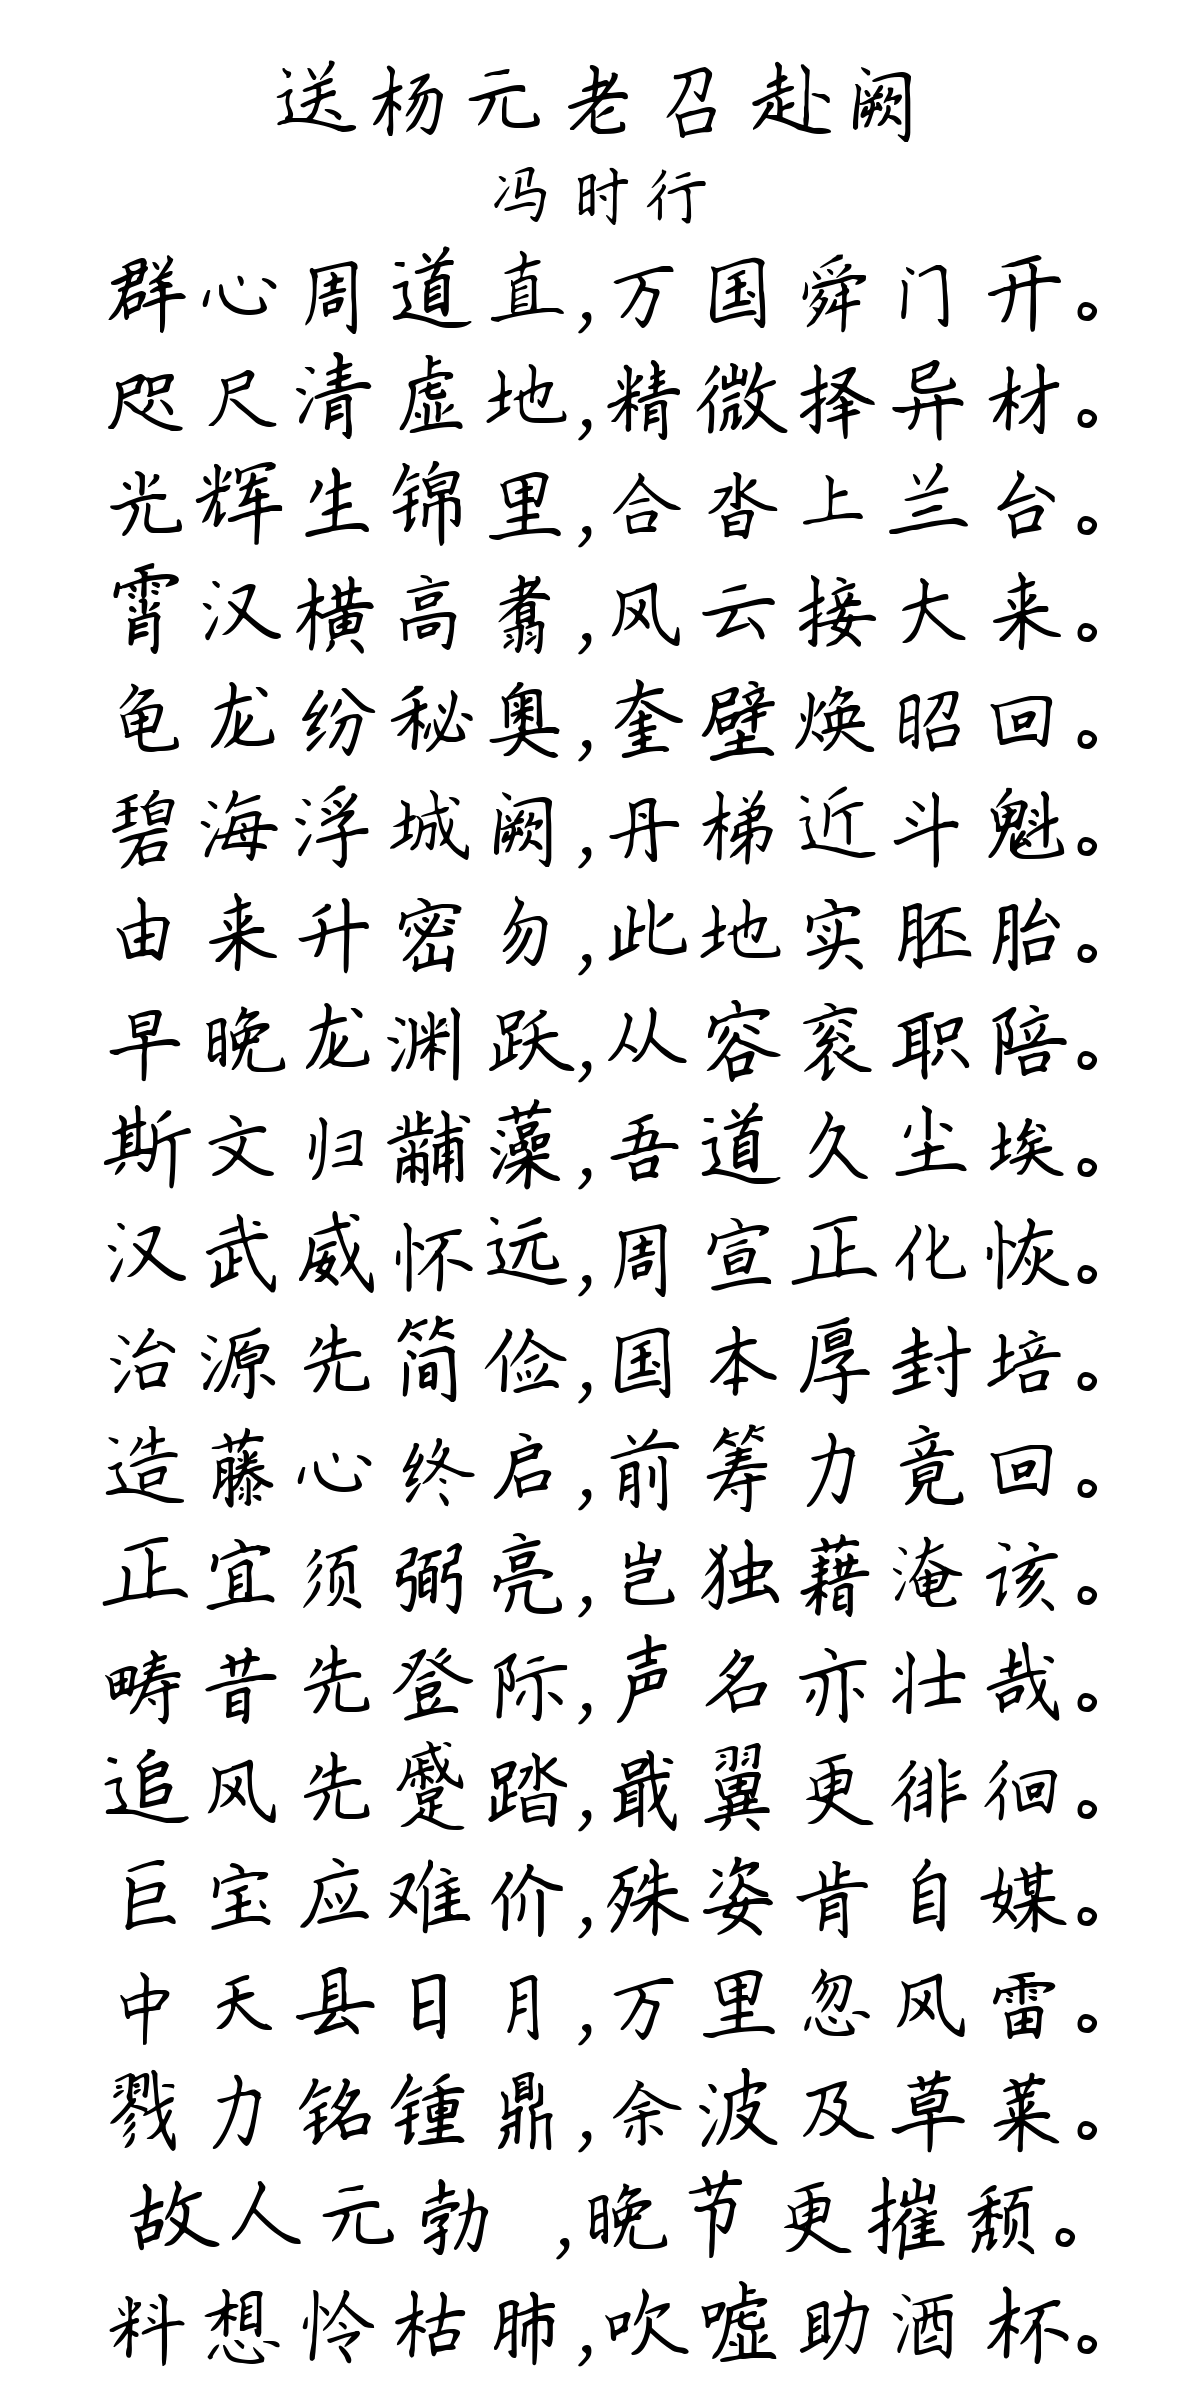 送杨元老召赴阙
冯时行
群心周道直,万国舜门开。
咫尺清虚地,精微择异材。
光辉生锦里,合沓上兰台。
霄汉横高翥,风云接大来。
龟龙纷秘奥,奎壁焕昭回。
碧海浮城阙,丹梯近斗魁。
由来升密勿,此地实胚胎。
早晚龙渊跃,从容衮职陪。
斯文归黼藻,吾道久尘埃。
汉武威怀远,周宣正化恢。
治源先简俭,国本厚封培。
造藤心终启,前筹力竟回。
正宜须弼亮,岂独藉淹该。
畴昔先登际,声名亦壮哉。
追风先蹙踏,戢翼更徘徊。
巨宝应难价,殊姿肯自媒。
中天县日月,万里忽风雷。
戮力铭锺鼎,余波及草莱。
故人元勃 ,晚节更摧颓。
料想怜枯肺,吹嘘助酒杯。